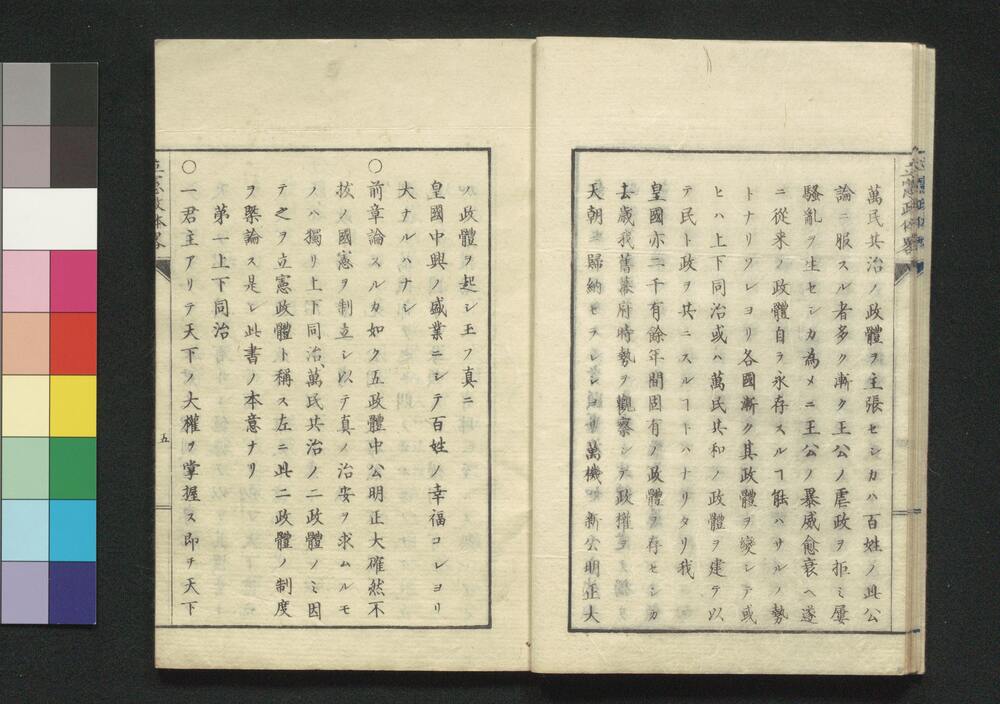 萬民共治ノ政體ヲ主張セシカハ百姓ノ此公
論ニ服スル者多ク漸ク王公ノ虐政ヲ拒ミ屢
騷亂ヲ生セシカ為メニ王公ノ暴威愈衰ヘ遂
ニ從来ノ政體自ラ永存スルヿ能ハサルノ勢
トナリソレヨリ各國漸ク其政體ヲ變シテ或
ヒハ上下同治或ハ萬民共和ノ政體ヲ建テ以
テ民ト政ヲ共ニスルヿトハナリタリ我
皇國亦二千有餘年間固有ノ政體ヲ存セシカ
去歳我舊幕府時勢ヲ觀察シテ政權ヲ
天朝ニ歸納セラレシ萬機一新公明正大
ノ政體ヲ起シ玉フ真ニ
皇國中興ノ盛業ニシテ百姓ノ幸福コレヨリ
大ナルハナシ
〇前章論スルカ如ク五政體中公明正大確然不
拔ノ國憲ヲ制立シ以テ真ノ治安ヲ求ムルモ
ノハ獨リ上下同治、萬民共治ノ二政體ノミ因
テ之ヲ立憲政體ト稱ス左ニ此二政體ノ制度
ヲ槩論ス是レ此書ノ本意ナリ
第一上下同治
〇一君主アリテ天下ノ大權ヲ掌握ス即チ天下
五